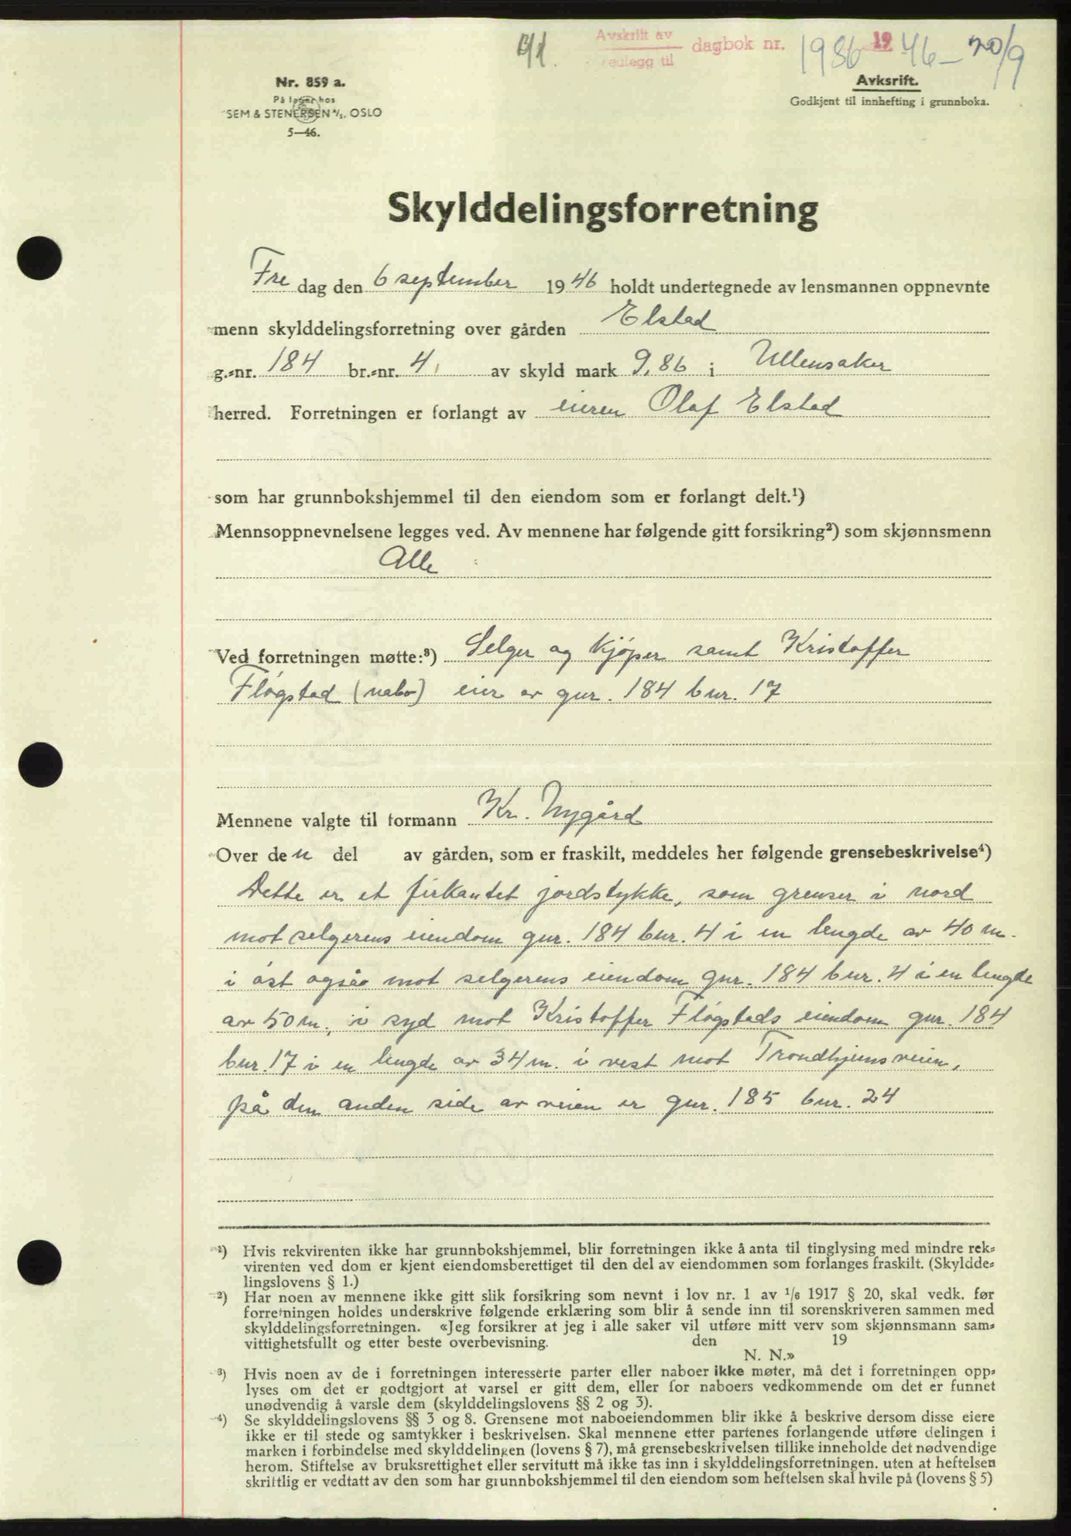 B/1. Avskrift av dagbok nr. 1986 1946 - 20/9
vedlegg til
Nr. 859 a.
På lager hos
SEM & STENERSEN A/S. OSLO
5—46.
Avksrift.
Godkjent til innhefting i grunnboka.
Skylddelingsforretning
Fre dag den 6 september 1946 holdt undertegnede av lensmannen oppnevnte
menn skylddelingsforretning over gården Elstad
g.-nr. 184 br.-nr. 4, av skyld mark 9,86 i Ullensaker
herred. Forretningen er forlangt av eieren Olaf Elstad
som har grunnbokshjemmel til den eiendom som er forlangt delt.¹)
Mennsoppnevnelsene legges ved. Av mennene har følgende gitt forsikring²) som skjønnsmenn
Alle
Ved forretningen møtte:³) Selger og kjøper samt Kristoffer
Fløgstad (nabo) eier av gnr. 184 bnr. 17
Mennene valgte til formann Kr. Nygård
Over den del av gården, som er fraskilt, meddeles her følgende grensebeskrivelse⁴)
Dette er et firkantet jordstykke, som grenser i nord
mot selgerens eiendom gnr. 184 bnr. 4 i en lengde av 40 m.
i øst også mot selgerens eiendom gnr. 184 bnr. 4 i en lengde
av 50 m., i syd mot Kristoffer Fløgstads eiendom gnr. 184
bnr. 17 i en lengde av 34 m. i vest mot Trondhjemsveien,
på den anden side av veien er gnr. 185 bnr. 24
¹) Hvis rekvirenten ikke har grunnbokshjemmel, blir forretningen ikke å anta til tinglysing med mindre rek-
virenten ved dom er kjent eiendomsberettiget til den del av eiendommen som forlanges fraskilt. (Skyldde-
lingslovens § 1.)
²) Har noen av mennene ikke gitt slik forsikring som nevnt i lov nr. 1 av 1/6 1917 § 20, skal vedk. før
forretningen holdes underskrive følgende erklæring som blir å sende inn til sorenskriveren sammen med
skylddelingsforretningen. «Jeg forsikrer at jeg i alle saker vil utføre mitt verv som skjønnsmann sam-
vittighetsfullt og etter beste overbevisning. den 19
N. N.»
³) Hvis noen av de i forretningen interesserte parter eller naboer ikke møter, må det i forretningen opp-
lyses om det er godtgjort at varsel er gitt dem, eller for naboers vedkommende om det er funnet
unødvendig å varsle dem (skylddelingslovens §§ 2 og 3).
⁴) Se skylddelingslovens §§ 3 og 8. Grensene mot naboeiendommen blir ikke å beskrive dersom disse eiere
ikke er til stede og samtykker i beskrivelsen. Skal mennene etter partenes forlangende utføre delingen i
marken i forbindelse med skylddelingen (lovens § 7), må grensebeskrivelsen tillike inneholde det nødvendige
herom. Stiftelse av bruksrettighet eller servitutt må ikke tas inn i skylddelingsforretningen. uten at heftelsen
skriftlig er vedtatt av den som har grunnbokshjemmel til den eiendom som heftelsen skal hvile på (lovens § 5)